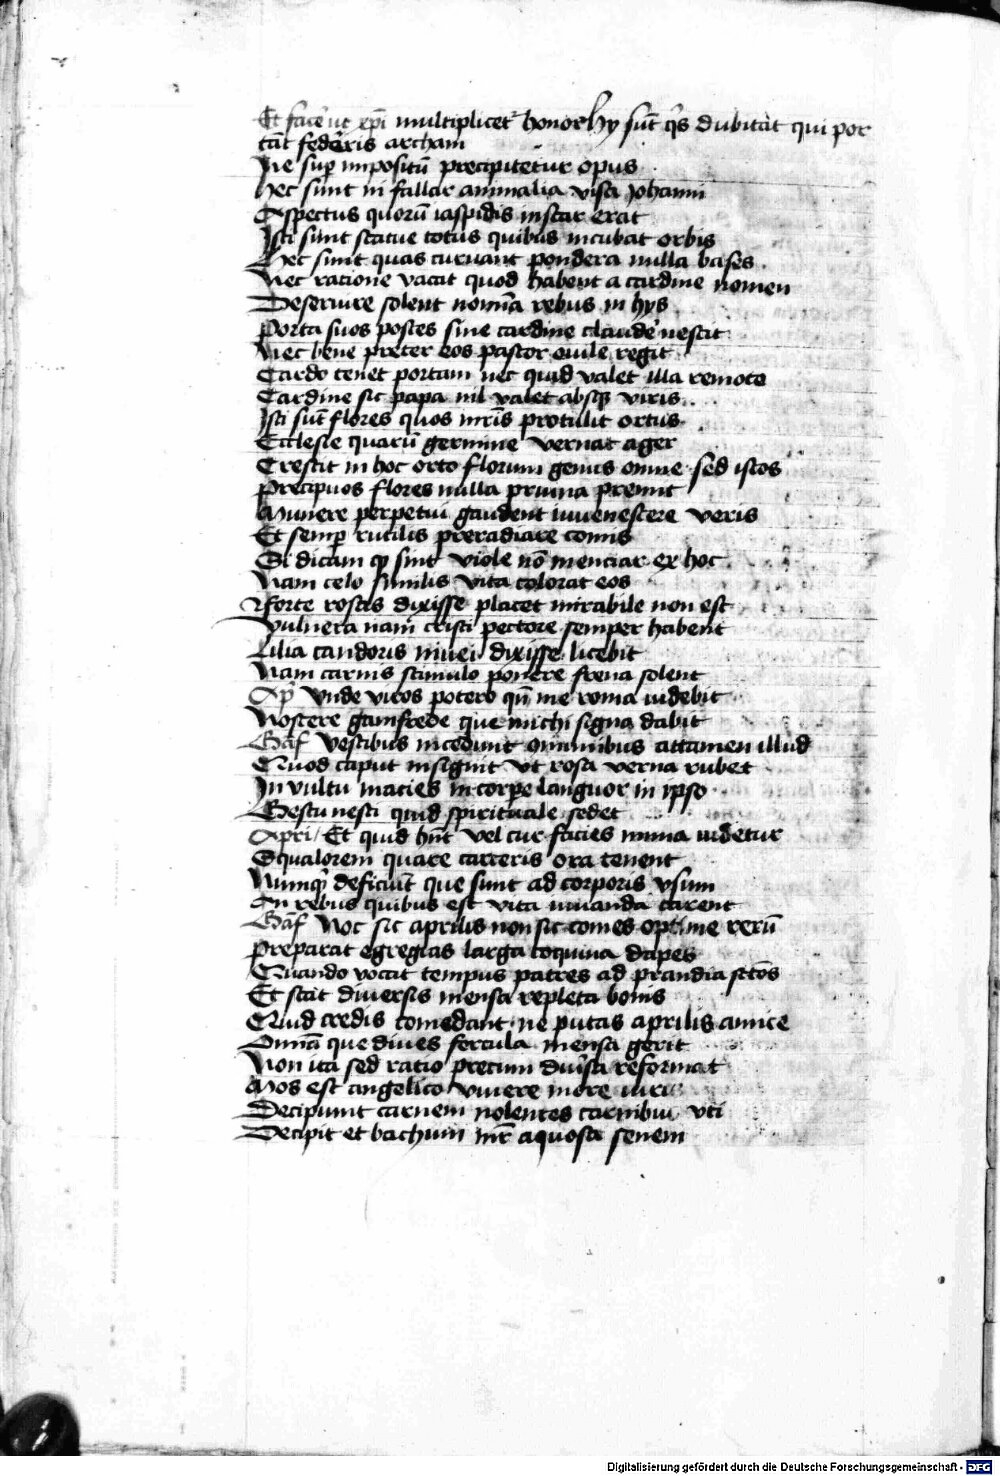 Et facere ut xpi multiplicet honor hy sūt qs dubitat qui por
tāt federis archam
Ne sup impositū precipitetur opus
Hec sunt ni fallar animalia visa Johanni
Aspectus quorū iaspidis instar erat
Isti sunt statue totus quibus incubat orbis
Hec sunt quas curuant pondera nulla bases
Nec ratione vacat quod habent a cardine nomen
Deseruire solent nomīa rebus in hys
Porta suos postes sine cardine claudere nescit
Nec bene preter eos pastor ouile regit
Cardo tenet portam nec quid valet illa remoto
Cardine sic papa nil valet absq viris
Isti sūt flores quos nrīs protulit ortus
Ecclesie quarū germine vernat ager
Crescit in hoc orto florum genus omne sed istos
Precipuos flores nulla pruina premit
Munere perpetui gaudent iuuenescere veris
Et semp rutilis preradiare comis
Si dicam qp sint viole nō menciar ex hoc
Nam celo similis vita colorat eos
Forte rosas dixisse placet mirabile non est
Vulnera nam cristi pectore semper habent
Lilia candoris niuei dixisse licebit
Nam carnis stimulo ponere frena solent
Ap Vnde viros potero qn me roma videbit
Noscere gamfrede que michi signa dabit
Gāf Vestibus incedunt omnibus attamen illud
Quod caput insignit vt rosa verna rubet
In vultu macies in corpe languor in ipso
Gestu nesci quid spirituale sedet
Apri Et quid hnt vel cur facies mima videtur
Squalorem quare carceris ora tenent
Numq deficiūt que sunt ad corporis vsum
An rebus quibus est vita iuuanda carent
Gāf Noc sic aprilis non sic comes optime rerū
Preparat egregias larga coquina dapes
Quando vocat tempus patres ad prandia sctōs
Et stat diuersis mensa repleta bonis
Quid credis comedant ne putas aprilis amice
Omīa que diues fercula mensa gerit
Non ita sed ratio precium diuisa reformat
Mos est angelico viuere more viris
Decipiunt carnem nolentes carnibus vti
Decipit et bachum mr aquosa senem
Digitalisierung gefördert durch die Deutsche Forschungsgemeinschaft - DFG